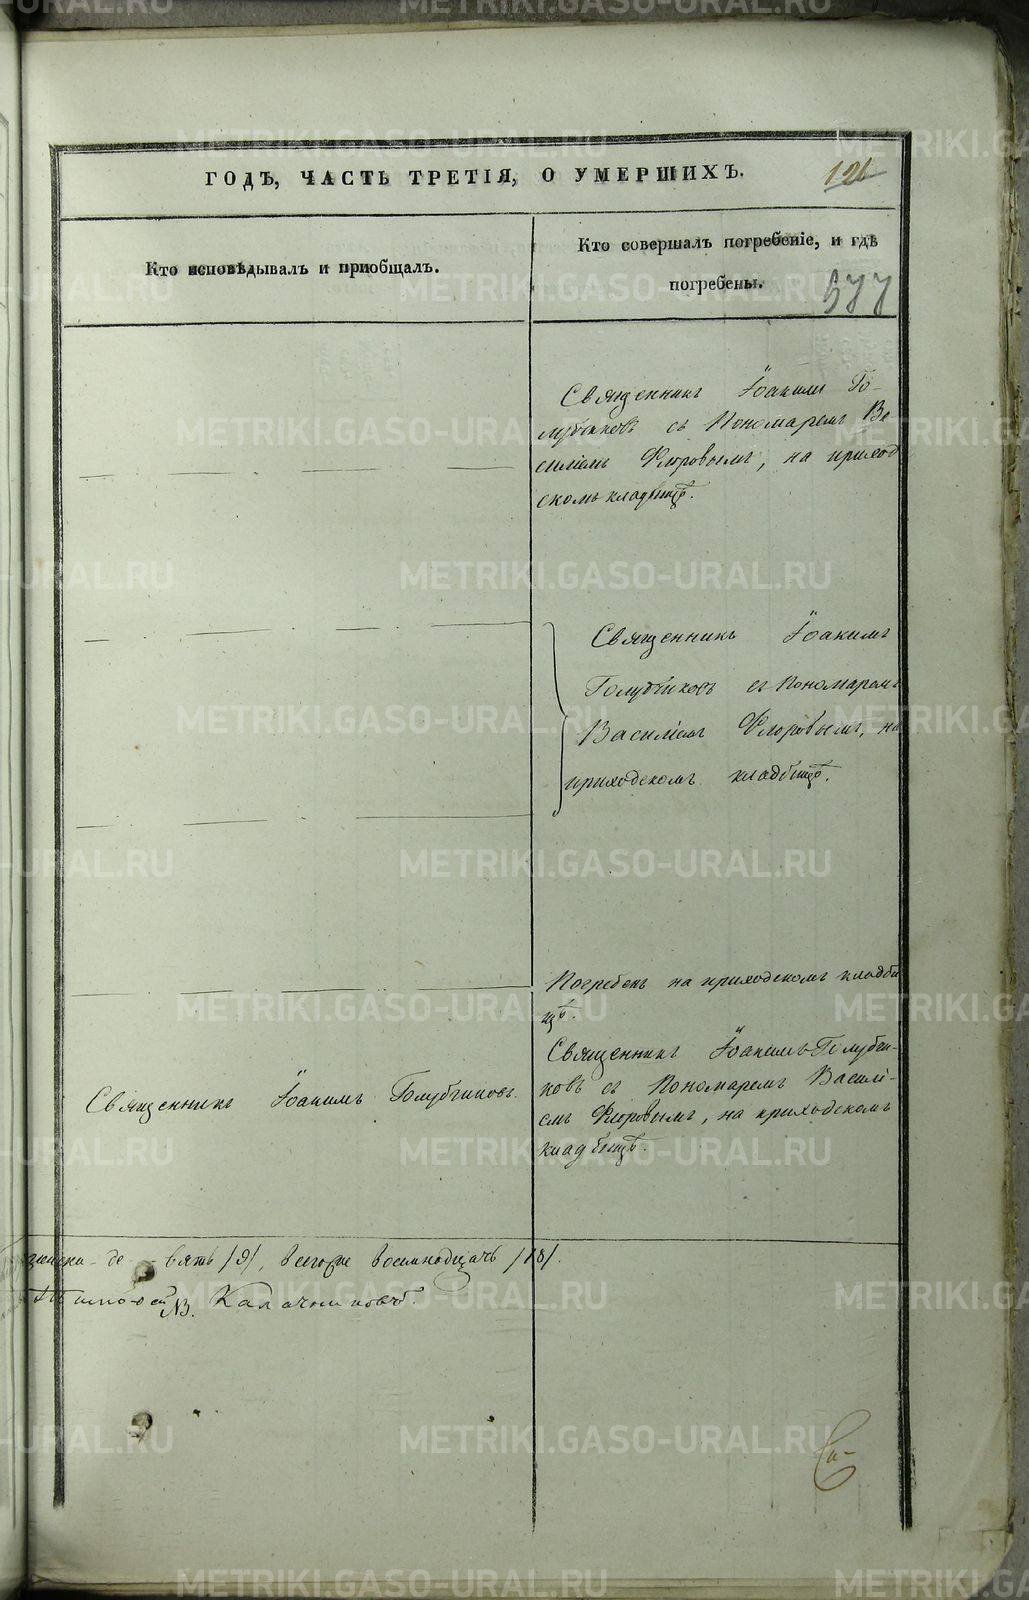 ГОДЪ, ЧАСТЬ ТРЕТІЯ, О УМЕРШИХЪ.
121
Кто исповѣдывалъ и пріобщалъ.
Кто совершалъ погребеніе, и гдѣ
погребены.
577
Священникъ Іоакимъ Го-
лубчиковъ съ Пономаремъ Ва
силіемъ Флоровымъ, на приход
скомъ кладбищѣ.
Священникъ Іоакимъ
Голубчиковъ съ Пономаремъ
Василіемъ Флоровымъ, на
приходскомъ кладбищѣ.
Погребенъ на приходскомъ кладби
щѣ.
Священникъ Іоакимъ Голубчи-
ковъ съ Пономаремъ Василі-
емъ Флоровымъ, на приходскомъ
кладбищѣ.
Священникъ Іоакимъ Голубчиковъ.
женска де вять /9/, всего восемнадцать /18/.
Калачниковъ.
METRIKI.GASO-URAL.RU